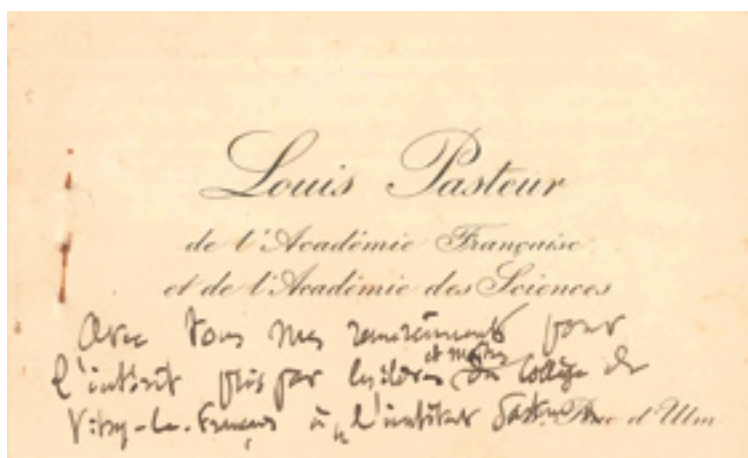 Louis Pasteur
de l'Académie Française
et de l'Académie des Sciences
Avec tous mes remerciements pour
et maîtres
l'intérêt pris par les élèves du Collège de
Vitry-le-François à l'institut Pasteur Rue d'Ulm